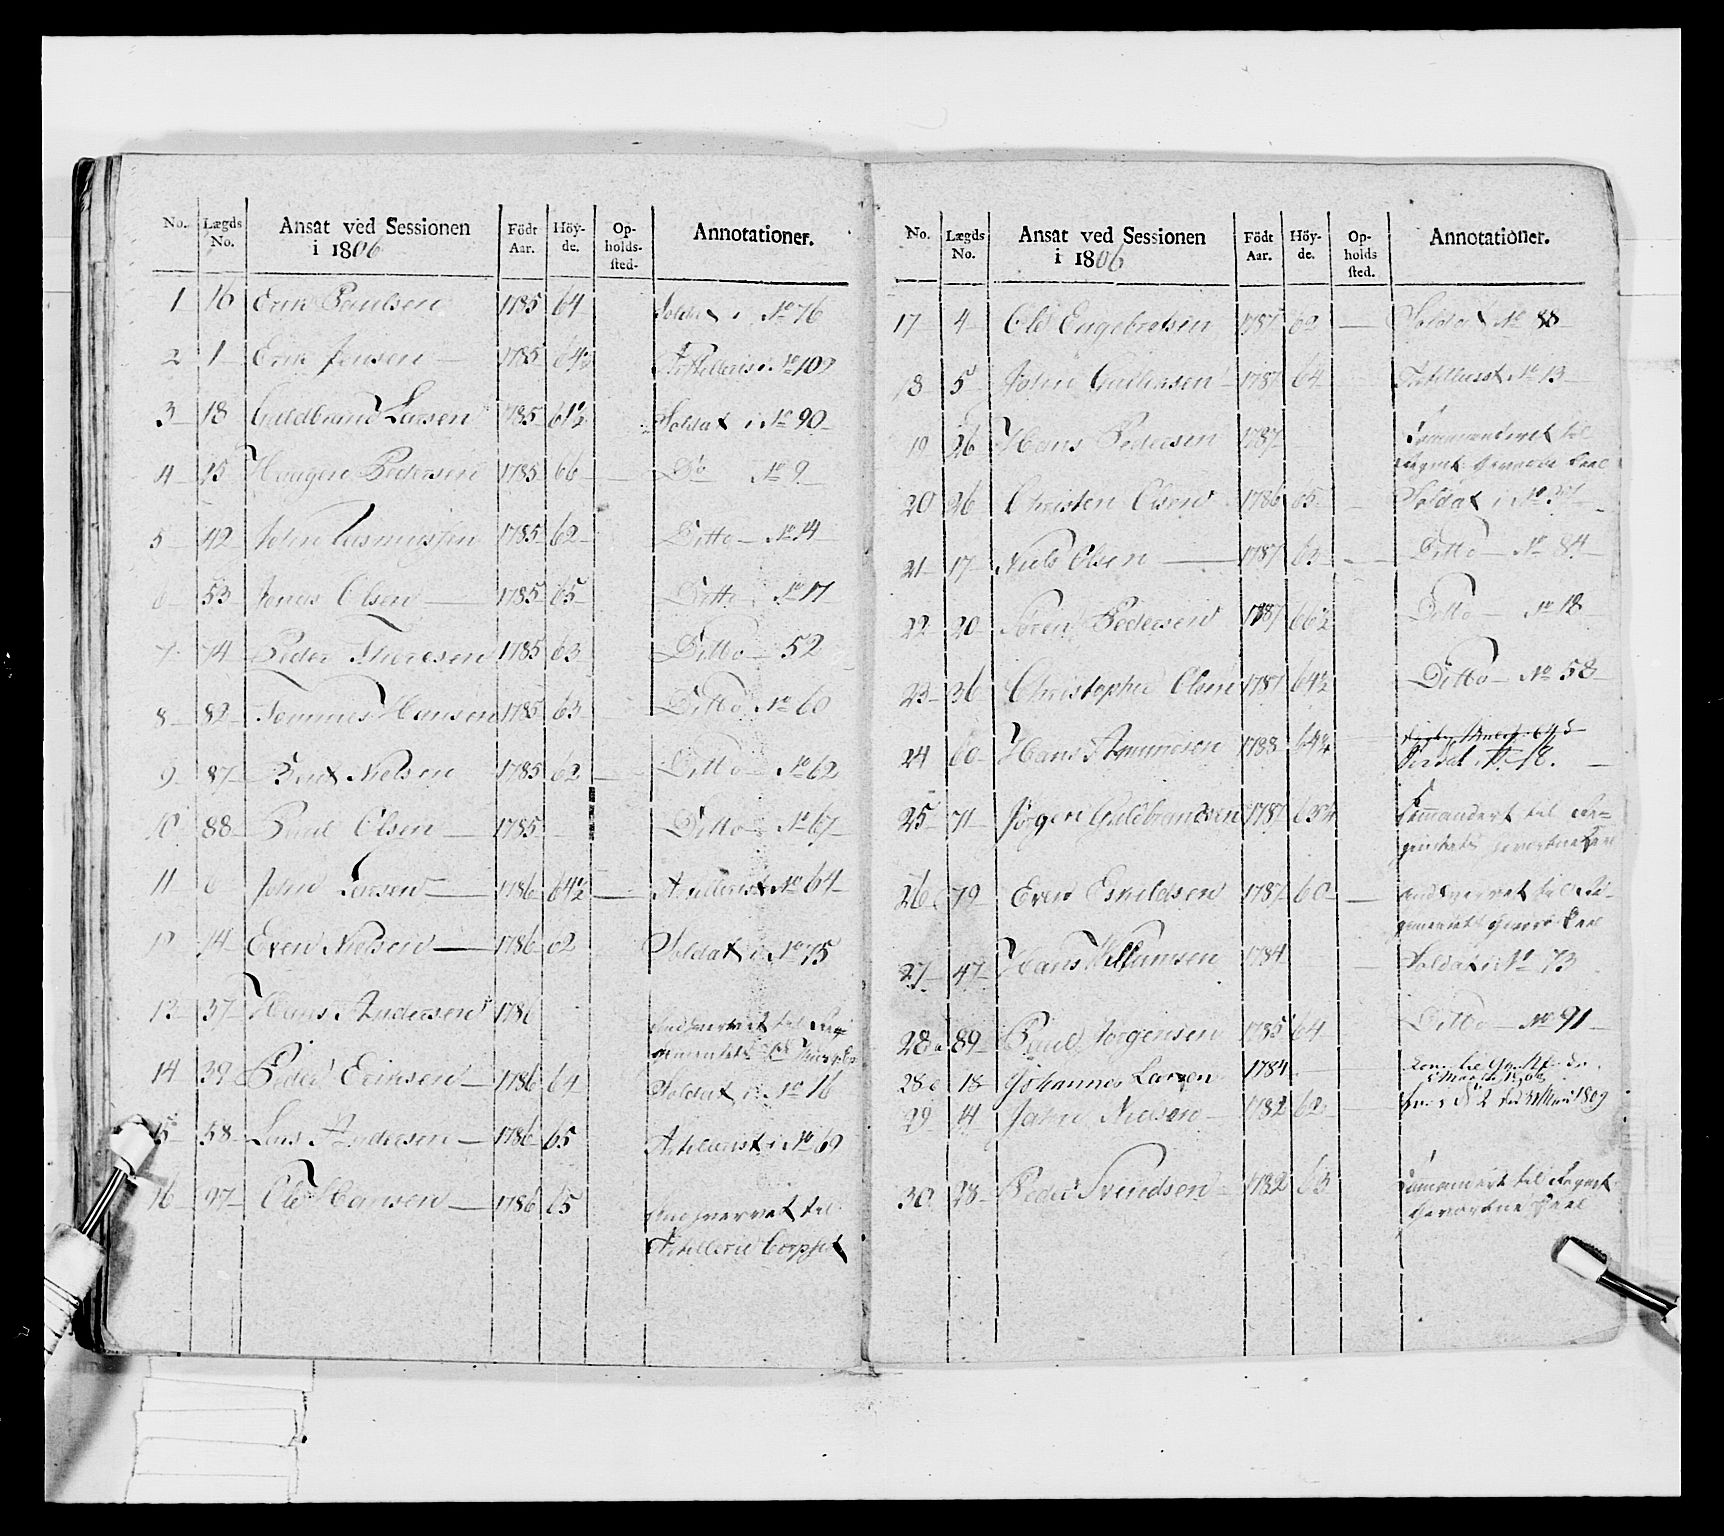 No. Lægds No. Ansat ved Sessionen i 1806 Födt Aar. Höy- de. Op- holds- sted. Annotationer.
1 16 Erik Paulsen 1785 64 Soldat i No 76
2 1 Erik Jensen 1785 64½ Artillerist No 10
3 18 Guldbrand Larsen 1785 61½ Soldat i No 90
4 15 Haagen Pedersen 1785 66 Do No 9
5 42 John Rasmussen 1785 62 Ditto No 14
6 53 Jonas Olsen 1785 65 Ditto No 17
7 74 Peder Thoresen 1785 63 Ditto 52
8 82 Hansen 1785 63 Ditto No 60
9 87 Nielsen 1785 62 Ditto No 62
10 88 Paul Olsen 1785 Ditto No 67
11 6 John Larsen 1786 64½ Artillerist No 64
12 14 Even Nielsen 1786 62 Soldat i No 75
13 37 Hans Andersen 1786 til Re-
gimentets
14 39 Peder Eriksen 1786 64 Soldat i No 16
15 58 Lars Andersen 1786 65 Artillerist i No 69
16 97 Ole Hansen 1786 65 til
Artillerie Corpset
No. Lægds No. Ansat ved Sessionen i 1806 Födt Aar. Höy- de. Op- holds sted. Annotationer.
17 4 Ole Engebretsen 1787 62 Soldat No 88
18 5 John Gulliksen 1787 64 Artillerist No 13
19 26 Hans Pedersen 1787 Commanderet til
Gevorbne
20 26 Christen Olsen 1786 65 Soldat i No 37
21 17 Niels Olsen 1787 62 Ditto No 84
22 20 Søren Pedersen 1787 66½ Ditto No 18
23 36 Christopher Olsen 1787 64½ Ditto No 58
24 60 Hans Amundsen 1788 64¾
No 18.
25 71 Jørgen Guldbrandsen 1787 63¼ Commandert til Re-
giments gevorbne
26 79 Even Eskildsen 1787 60 til Re-
gimentets
27 47 Hans Willumsen 1784 Soldat i No 73
28a 89 Paul Jørgensen 1785 64 Ditto No 91
28 18 Johannes Larsen 1784
29 14 John Nielsen 1782 62 1809
30 28 Peder Svendsen 1782 63 Commandert til Regmt
Gevorbne